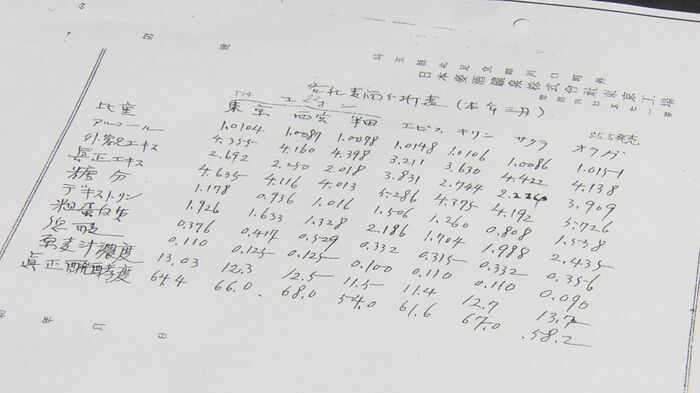 第 號
埼玉縣北足立郡川口町外
日本麥酒鑛泉株式會社東京工場
各社麦酒分析表 (本年三月)
TM ユニオン S5.5発売
東京 西宮 半田 エビス キリン サクラ オラガ
比重 1.0104 1.0087 1.0078 1.0148 1.0106 1.0086 1.0151
アルコール 4.355 4.160 4.398 3.211 3.630 4.422 4.138
外観エキス 2.692 2.250 2.018 3.831 2.744 3.909
真正エキス 4.635 4.116 4.013 5.286 4.375 4.192 5.726
糖分 1.178 0.936 1.016 1.506 1.260 0.808 1.538
デキストリン 1.926 1.633 1.328 2.186 1.704 1.988 2.435
粗蛋白質 0.376 0.417 0.529 0.332 0.315 0.332 0.356
総酸 0.110 0.125 0.125 0.100 0.110 0.110 0.090
原麦汁濃度 13.03 12.3 12.5 11.5 11.4 12.7 13.7
真正醗酵度 64.4 66.0 68.0 54.0 61.6 67.0 58.2
年 月 日